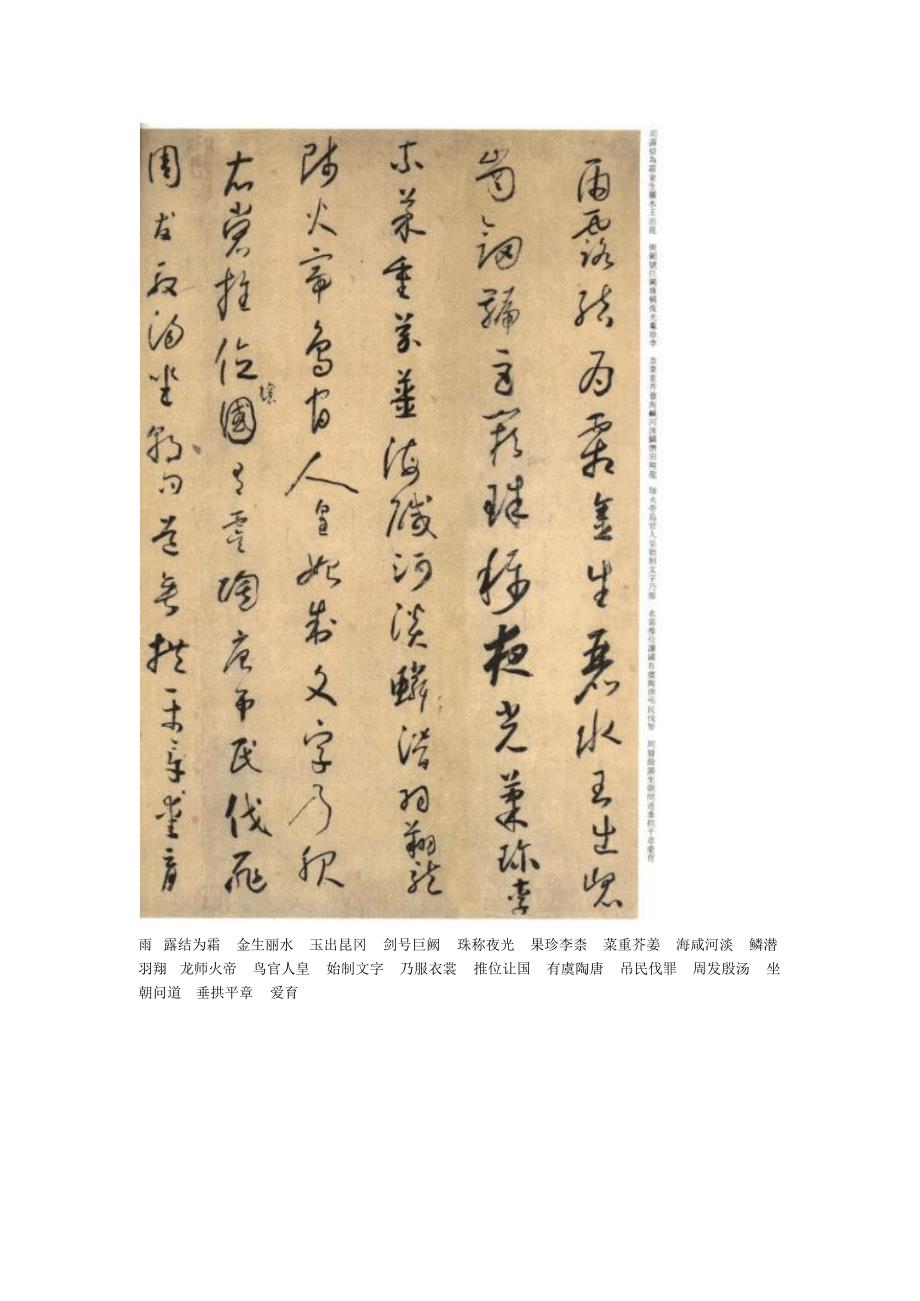 雨露结为霜金生丽水玉出崑
岡劔號巨闕珠稱夜光菓珍李
柰菜重芥薑海醎河淡鱗潜羽翔龍
師火帝鳥官人皇始制文字乃服
衣裳推位讓國有虞陶唐吊民伐罪
周發殷湯坐朝問道垂拱平章愛育
雨露結為霜金生麗水玉出崑 岡劔號巨闕珠稱夜光菓珍李 柰菜重芥薑海鹹河淡鱗潛羽翔龍 師火帝鳥官人皇始制文字乃服 衣裳推位讓國有虞陶唐吊民伐罪 周發殷湯坐朝問道垂拱平章愛育
雨 露结为霜 金生丽水 玉出昆冈 剑号巨阙 珠称夜光 果珍李柰 菜重芥姜 海咸河淡 鳞潜
羽翔 龙师火帝 鸟官人皇 始制文字 乃服衣裳 推位让国 有虞陶唐 吊民伐罪 周发殷汤 坐
朝问道 垂拱平章 爱育